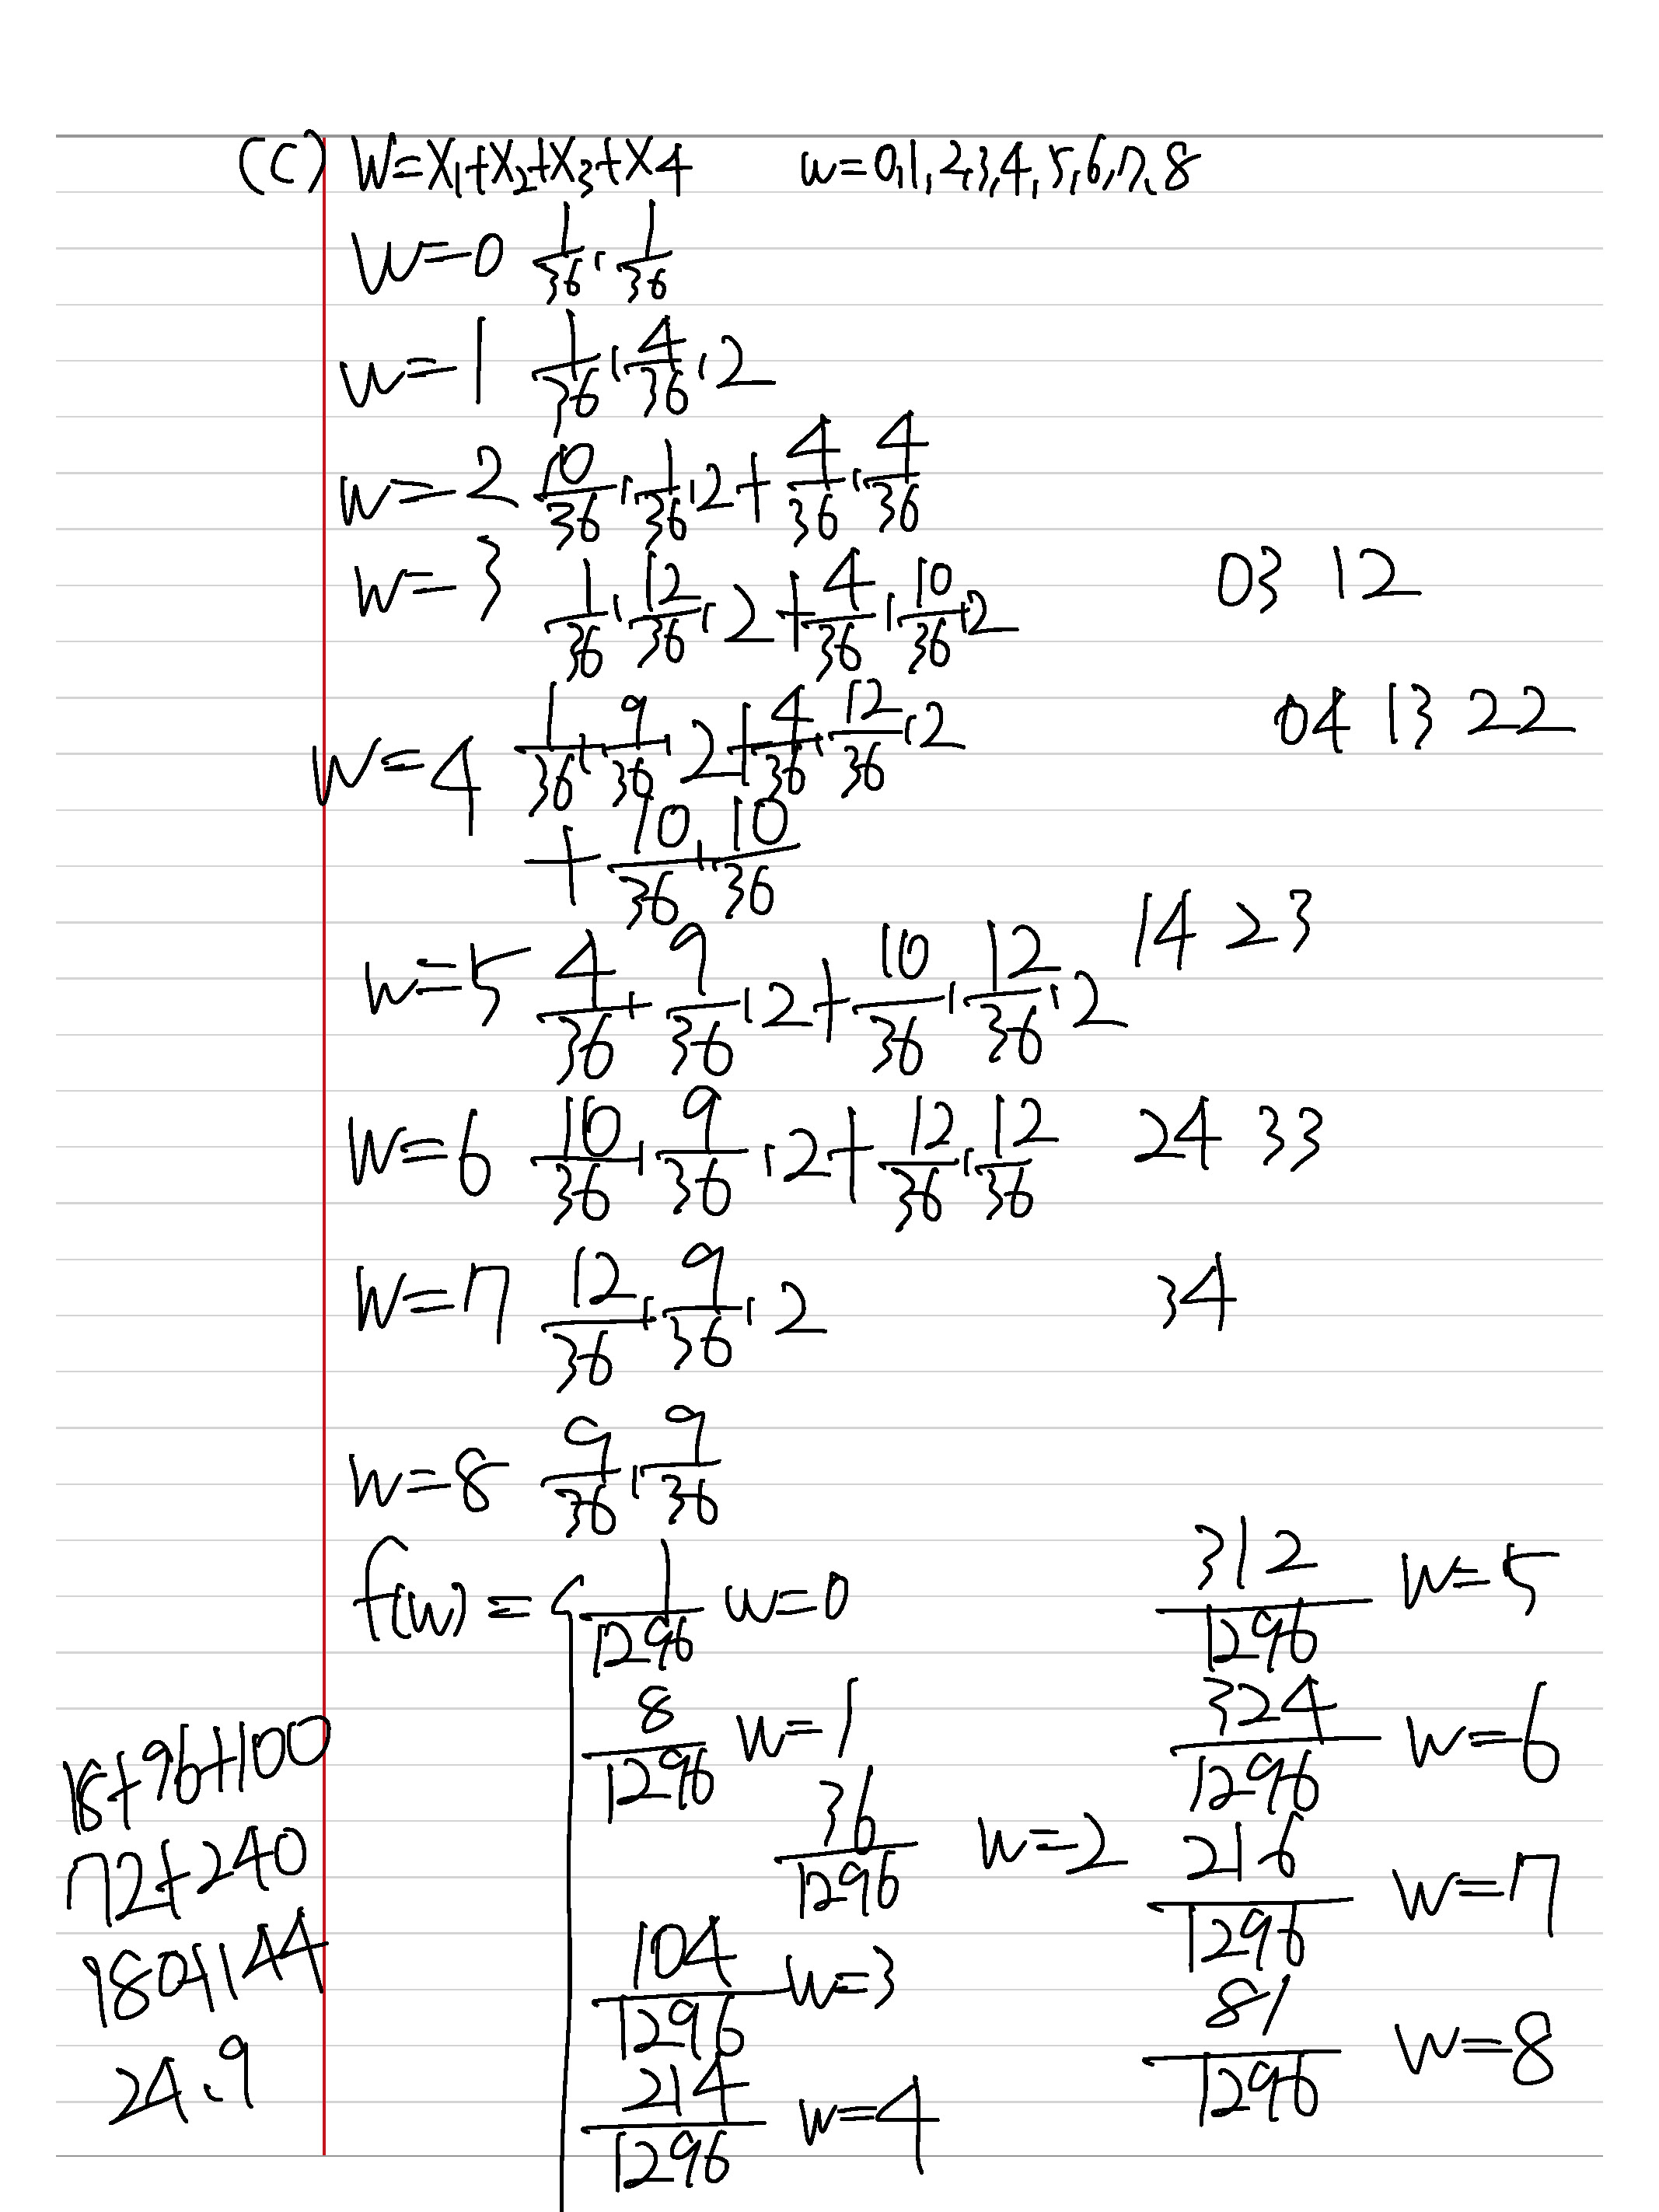 (C) W=X₁+X₂+X₃+X4 w=0,1,2,3,4,5,6,7,8
W=0 1/36·1/36
w=1 1/36·4/36·2
w=2 10/36·1/36·2+4/36·4/36
w=3 1/36·12/36·2+4/36·10/36·2 03 12
w=4 1/36·9/36·2+4/36·12/36·2 04 13 22
+10/36·10/36
w=5 4/36·9/36·2+10/36·12/36·2 14 23
W=6 10/36·9/36·2+12/36·12/36 24 33
W=7 12/36·9/36·2 34
w=8 9/36·9/36
f(w) = { 1/1296 w=0
8/1296 w=1
36/1296 w=2
104/1296 w=3
214/1296 w=4
312/1296 w=5
324/1296 w=6
216/1296 w=7
81/1296 w=8
18+96+100
72+240
180+144
24·9